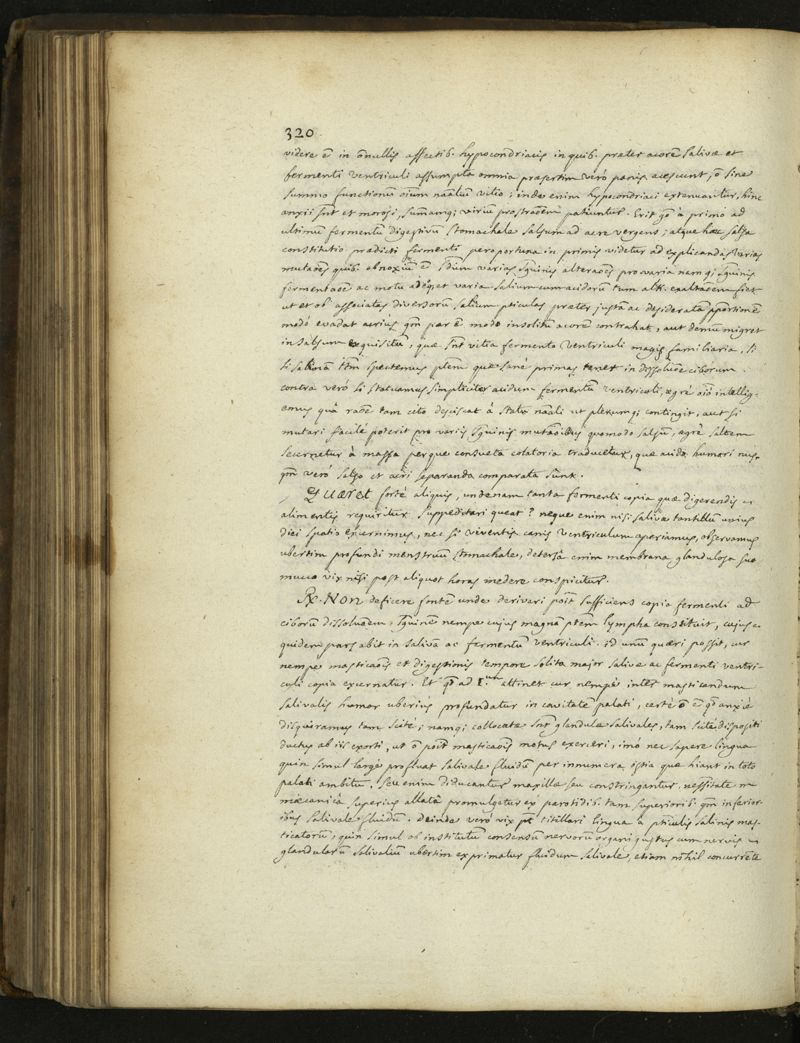 320
videre ē in ōnullis affectib. hypocondriacis in quib. præter acorē salivæ et
fermenti ventriculi assumpta omnia præsertim verò panis acescunt, ō sine
summo functionū oīum nāālium vitio; inde enim hypocondriaci extenuantur, hinc
anxii sn̄t et morosi, summamq; viriū prostraōem patiuntur. Erit gō à primo ad
ultimum fermentū digestivū stomachale salsum ad acre vergens; atque hæc salsa
constitutio prædicti fermenti peropportuna in primis videtur ad explicandas varias
mutaōēs quib. obnoxiū ē s̄dum varias sguinis alteraōes pro varia namq; sguinis
fermentaōē ac motu adéq; et varia salium cum acidorū tum alk. exaltaōem fiet
ut et ob associatas diversorū salium pticulas præter justā ac desideratā pportionē
modó evadat acrius qm̄ par ē modo insolitū acorē contrahat, aut demū migret
in salsum exquisitū, quæ sn̄t vitia fermento ventriculi magis familiaria, si
si salinā tm̄ spectemus ptem quæ sanè primas tenet in dissoluōē ciborum.
contra veró si statuamus simpliciter acidum fermentū ventriculi, ægrè oīo intellig-
emus quā raōe tam cito desciscat á statu nāāli ut plerumq; contingit, aut si
mutari facilè poterit pro variis sguinis mutaōibus quomodo salsū, ægrè saltem
secernetur à massa perque consueta colatoria traducetur, quæ acido humori nus-
qm̄ veró salso et acri separando comparata sunt.
Quæret fortè aliquis, undenam tanta fermenti copia quæ digerendis
alimentis requiritur suppeditari queat? neque enim nisi salivæ tantillū unius
diei spatio excernimus, nec si viventis canis ventriculum aperiamus, observamus
ubertim profundi menstruū stomachale, detersâ enim membrana glandulosa suo
mucco vix nisi post aliquot horas medere conspicitur.
R. Non deficere fontē unde derivari pot̄ sufficiens copia fermenti ad
ciborū dissoluōem, sguinē nempe cujus magnā ptem lympha constituit, cujus
quidem pars abit in salivā ac fermentū ventriculi. id unū quæri possit, cur
nempe masticaōis et digestionis tempore solito major salivæ ac fermenti ventri-
culi copia excernatur. Et qd ad 1.um attinet cur nempè inter masticandum
salivalis humor uberius profundatur in cavitatē palati, certè ō ē qd anxiè
disquiramus tam scitè; namq; collocatæ snt glandulæ salivales, tam scitè dispositi
ductus ab iis exorti, ut ō pot̄ masticaōis motus exerceri, imó nec sapere lingua
quin simul largè profluat salivale fluidū per innumera ostia quæ hiant in toto
palati ambitu, seu enim diducantur maxillæ seu constringantur necessitate
mæcanicâ superius allatâ promulgetur ex parotidib. tam superiorib. qm̄ inferior-
ibus salivale fluidū. deinde veró vix pt̄ titillari lingua à pticulis salinis mas-
ticatorū, quin simul ob institutū consensū nervorū organi gustus cum nervis
glandularū salivaliū ubertim exprimatur fluidum salivale, etiam nihil concurrēte